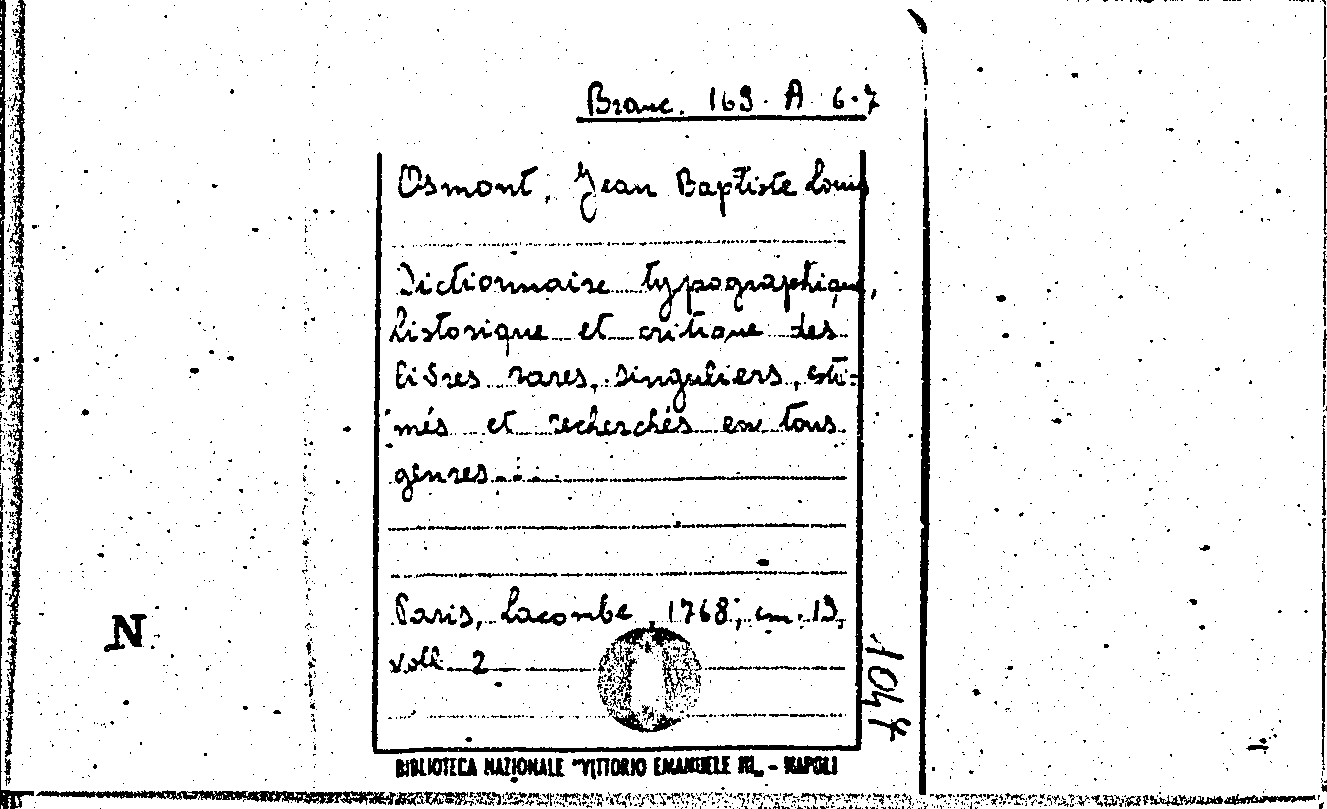 Branc. 169. A 6-7
Osmont, Jean Baptiste Louis
Dictionnaire typographique,
historique et critique des
livres rares, singuliers, esti-
més et recherchés en tous
genres...
Paris, Lacombe, 1768; cm. 19,
voll. 2
N
1047
BIBLIOTECA NAZIONALE "VITTORIO EMANUELE III" - NAPOLI